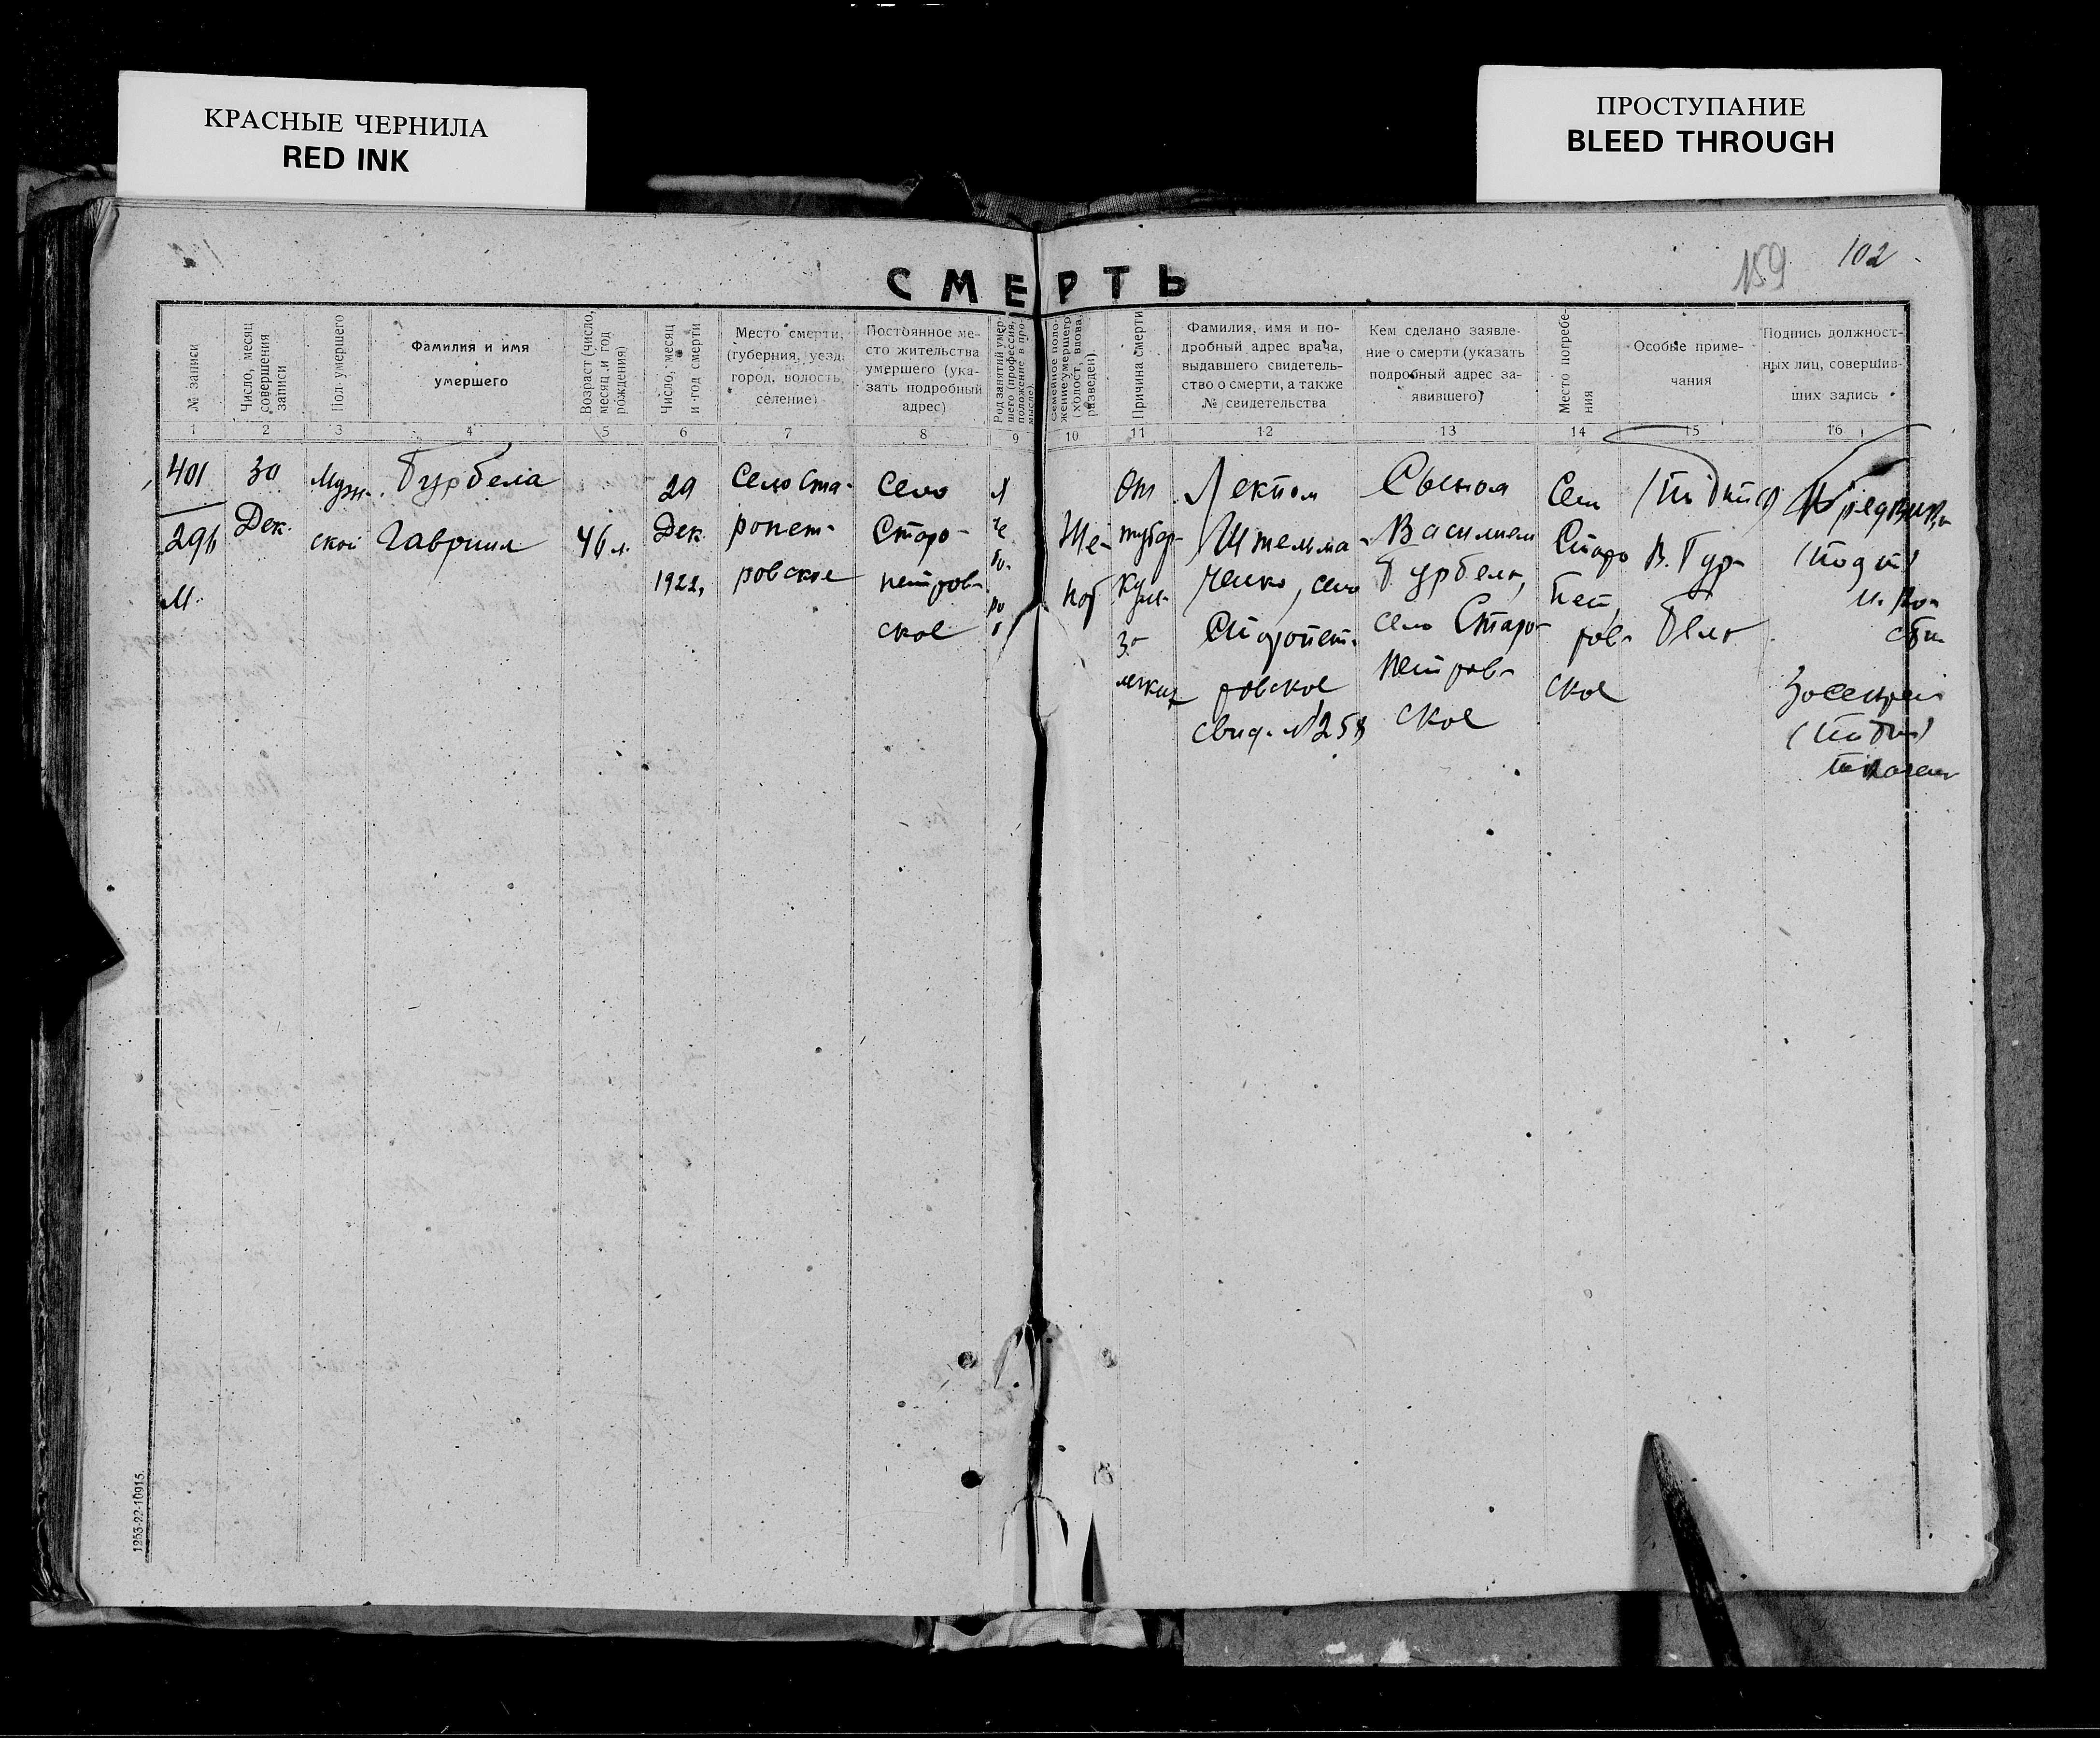 КРАСНЫЕ ЧЕРНИЛА
RED INK
ПРОСТУПАНИЕ
BLEED THROUGH
159
102
СМЕРТЬ
№ записи
Число, месяц
совершения
записи
Пол умершего
Фамилия и имя
умершего
Возраст (число,
месяц и год
рождения)
Число, месяц
и год смерти
Место смерти,
(губерния, уезд,
город, волость,
селение)
Постоянное ме-
сто жительства
умершего (ука-
зать подробный
адрес)
Род занятий умер-
шего (профессия,
положение в про-
мысле).
Семейное поло-
жение умершего
(холост, вдова,
разведен)
Причина смерти
Фамилия, имя и по-
дробный адрес врача,
выдавшего свидетель-
ство о смерти, а также
№ свидетельства
Кем сделано заявле-
ние о смерти (указать
подробный адрес за-
явившего)
Место погребе-
ния
Особые приме-
чания
Подпись должност-
ных лиц, совершив-
ших запись
1 2 3 4 5 6 7 8 9 10 11 12 13 14 15 16
401
296
М.
30
Дек.
Муж-
ской
Гурбела
Гавриил
46 л.
29
Дек.
1922,
Село Ста-
ропет-
ровское
Село
Старо-
петров-
ское
Же-
нат
От
тубер-
кул.
Лекпом
Штельма-
ченко, село
Старопет-
ровское
свид. №258
Сыном
Василием
Гурбела,
село Старо-
петров-
ское
Село
Старо
пет,
ров-
ское
В. Гур-
бела
1253-22-10915.